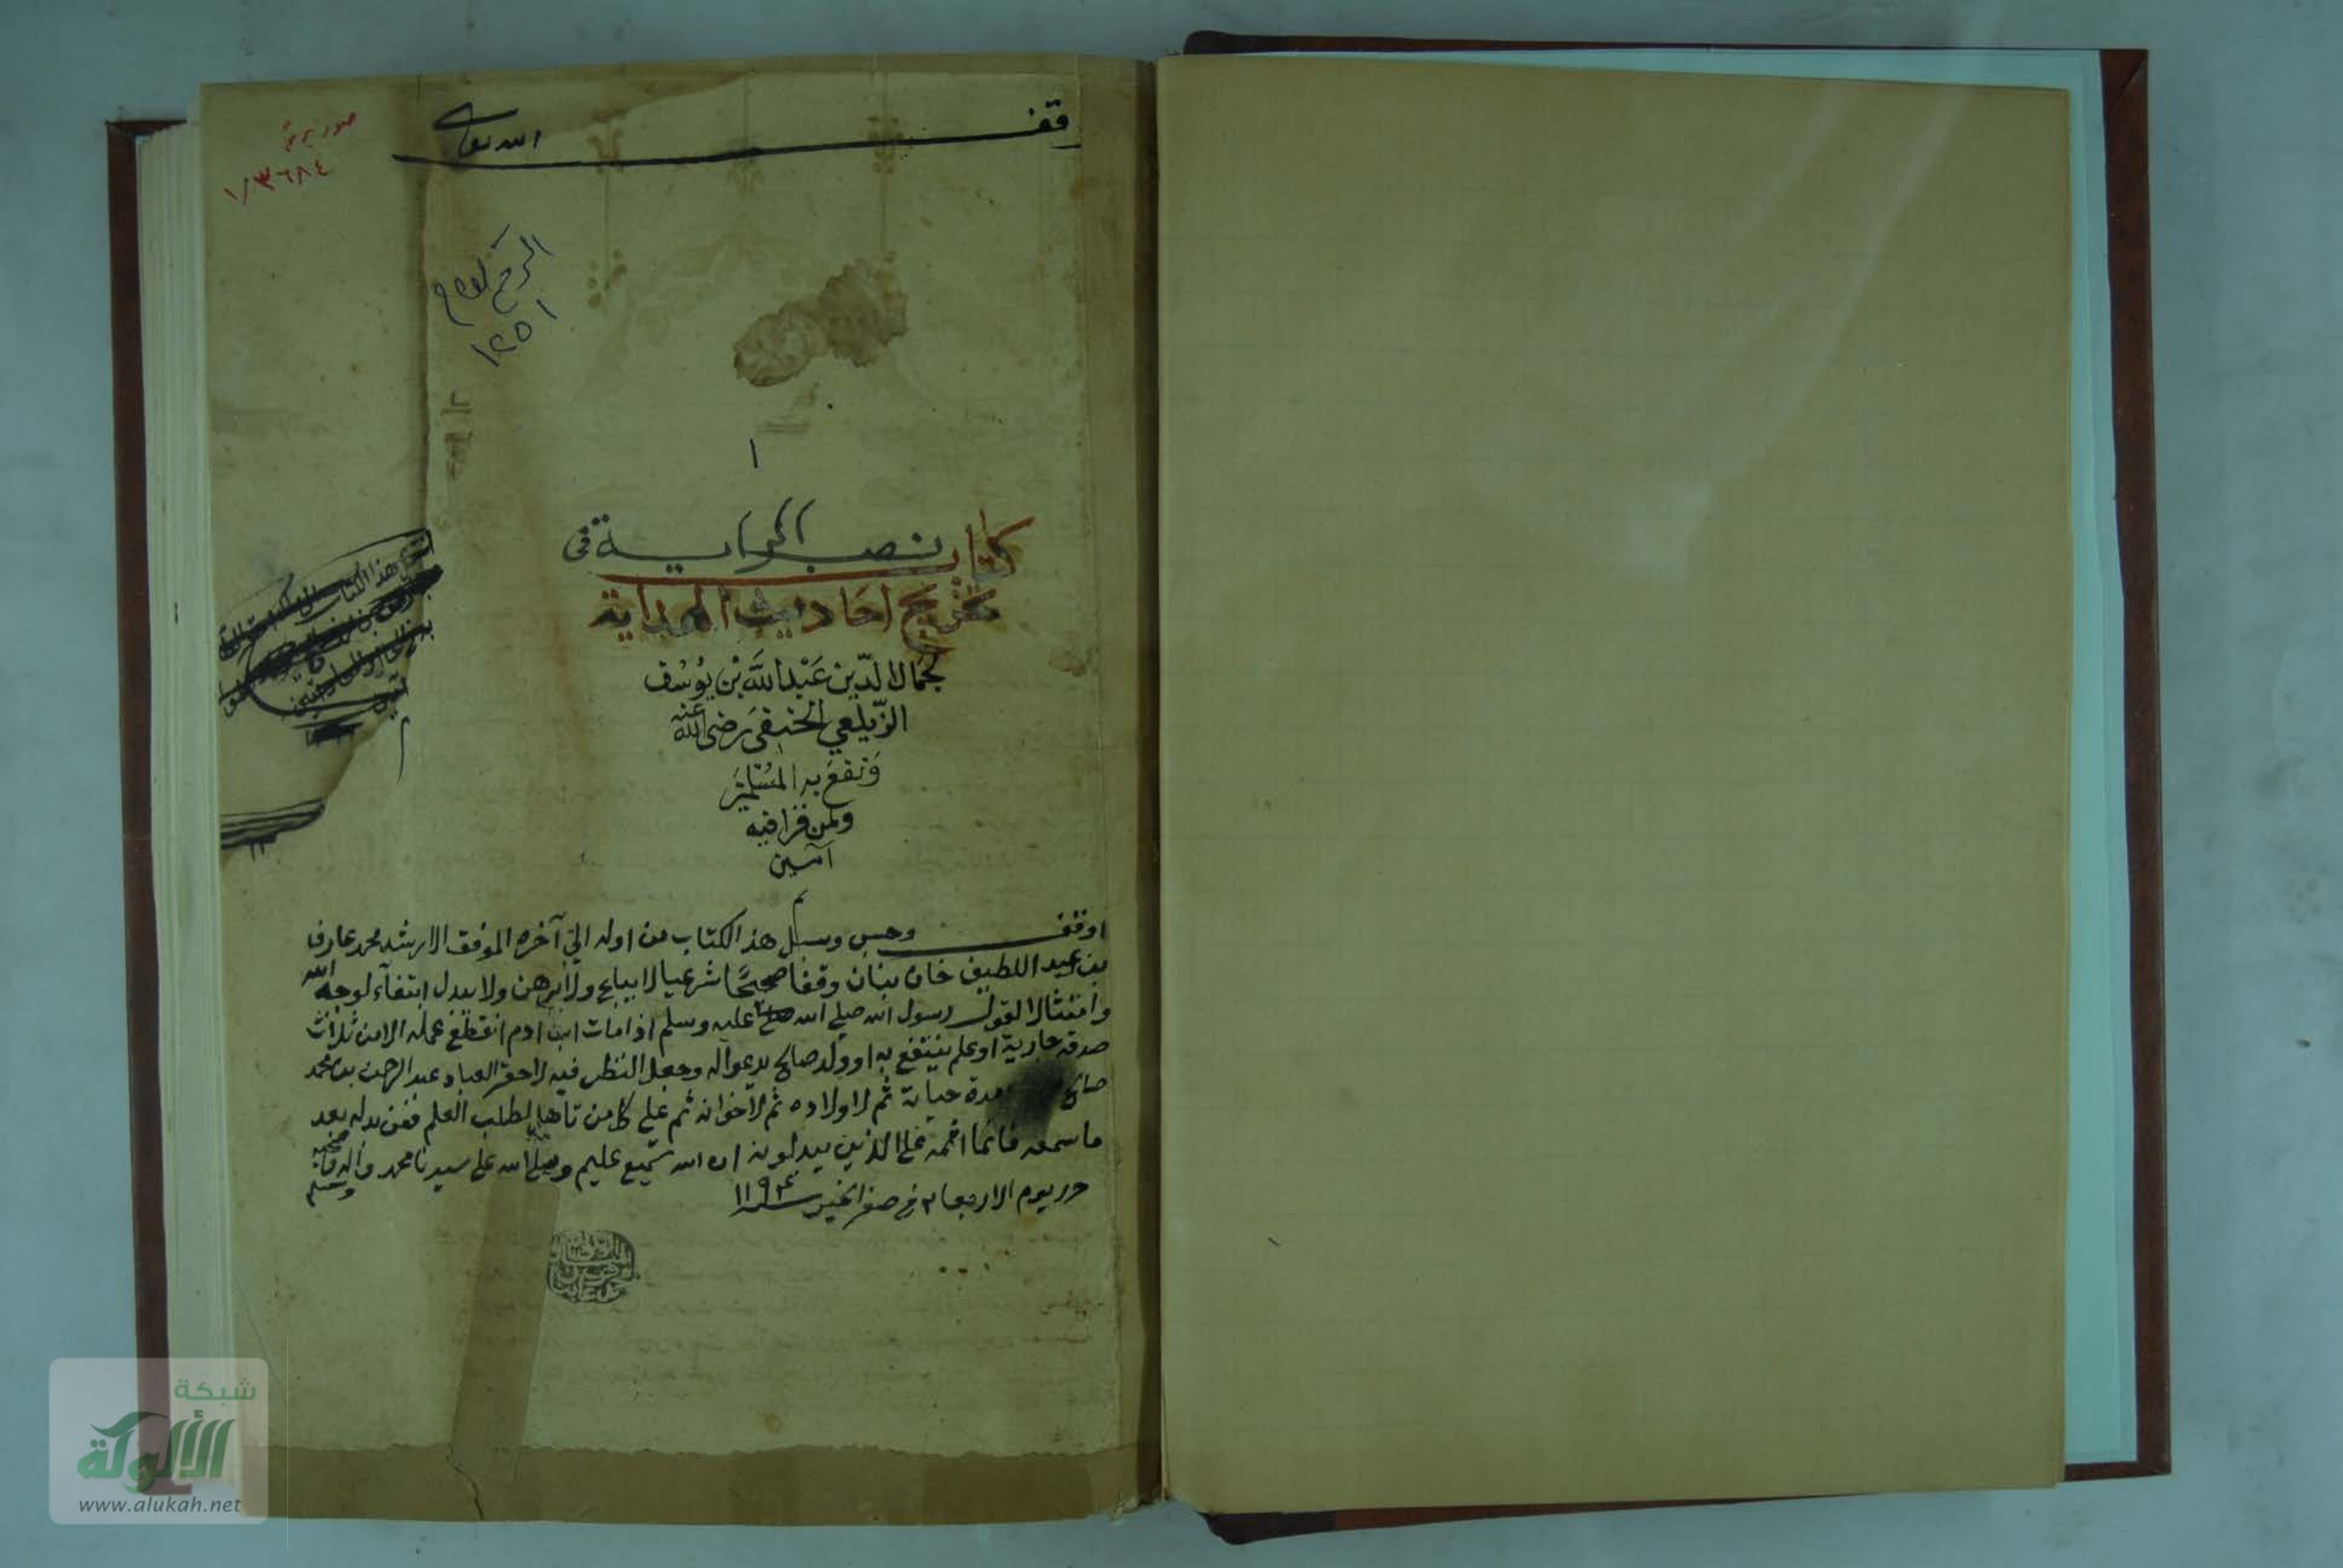 وقف
الله تعالى
١/٣٦٨٤
الرقم العام
١٢٥١
١
كتاب نصب الراية في
تخريج احاديث الهداية
لجمال الدّين عَبْد اللَّه بْن يوُسُف
الزّيلعي الحنفي رَضي اللّه عَنه
وَنفعَ به المسُلمينَ
ولمن قرا فيه
آمين
م
اوقف وحبس وسبل هذ الكتاب من اوله الي آخره الموفق الارشد محمد عارف
بن عبد اللطيف خان بنان وقفا صحيحًا شرعيا لا يباع ولا يرهن ولا يبدل ابتغآء لوجه الله
وامتثالا لقول رسول الله صلي الله عليه وسلم اذا مات ابن ادم انقطع عمله الا من ثلاث
صدقة جارية او علم ينتفع به او ولد صالح يدعو اله وجعل النظر فيه لاحقر العباد عبد الرحمن بن محمد
صالح مدة حياته ثم لاولاده ثم لاخوانه ثم علي كل من تأهل لطلب العلم فمن بدله بعد
ما سمعه فانما اثمه علي الذين يبدلونه ان الله سميع عليم وصلي الله على سيدنا محمد وآله وصحبه وسلم
حرر يوم الاربعا ٢ في صفر الخير سنة ١١٩٤
شبكة
الألوكة
www.alukah.net